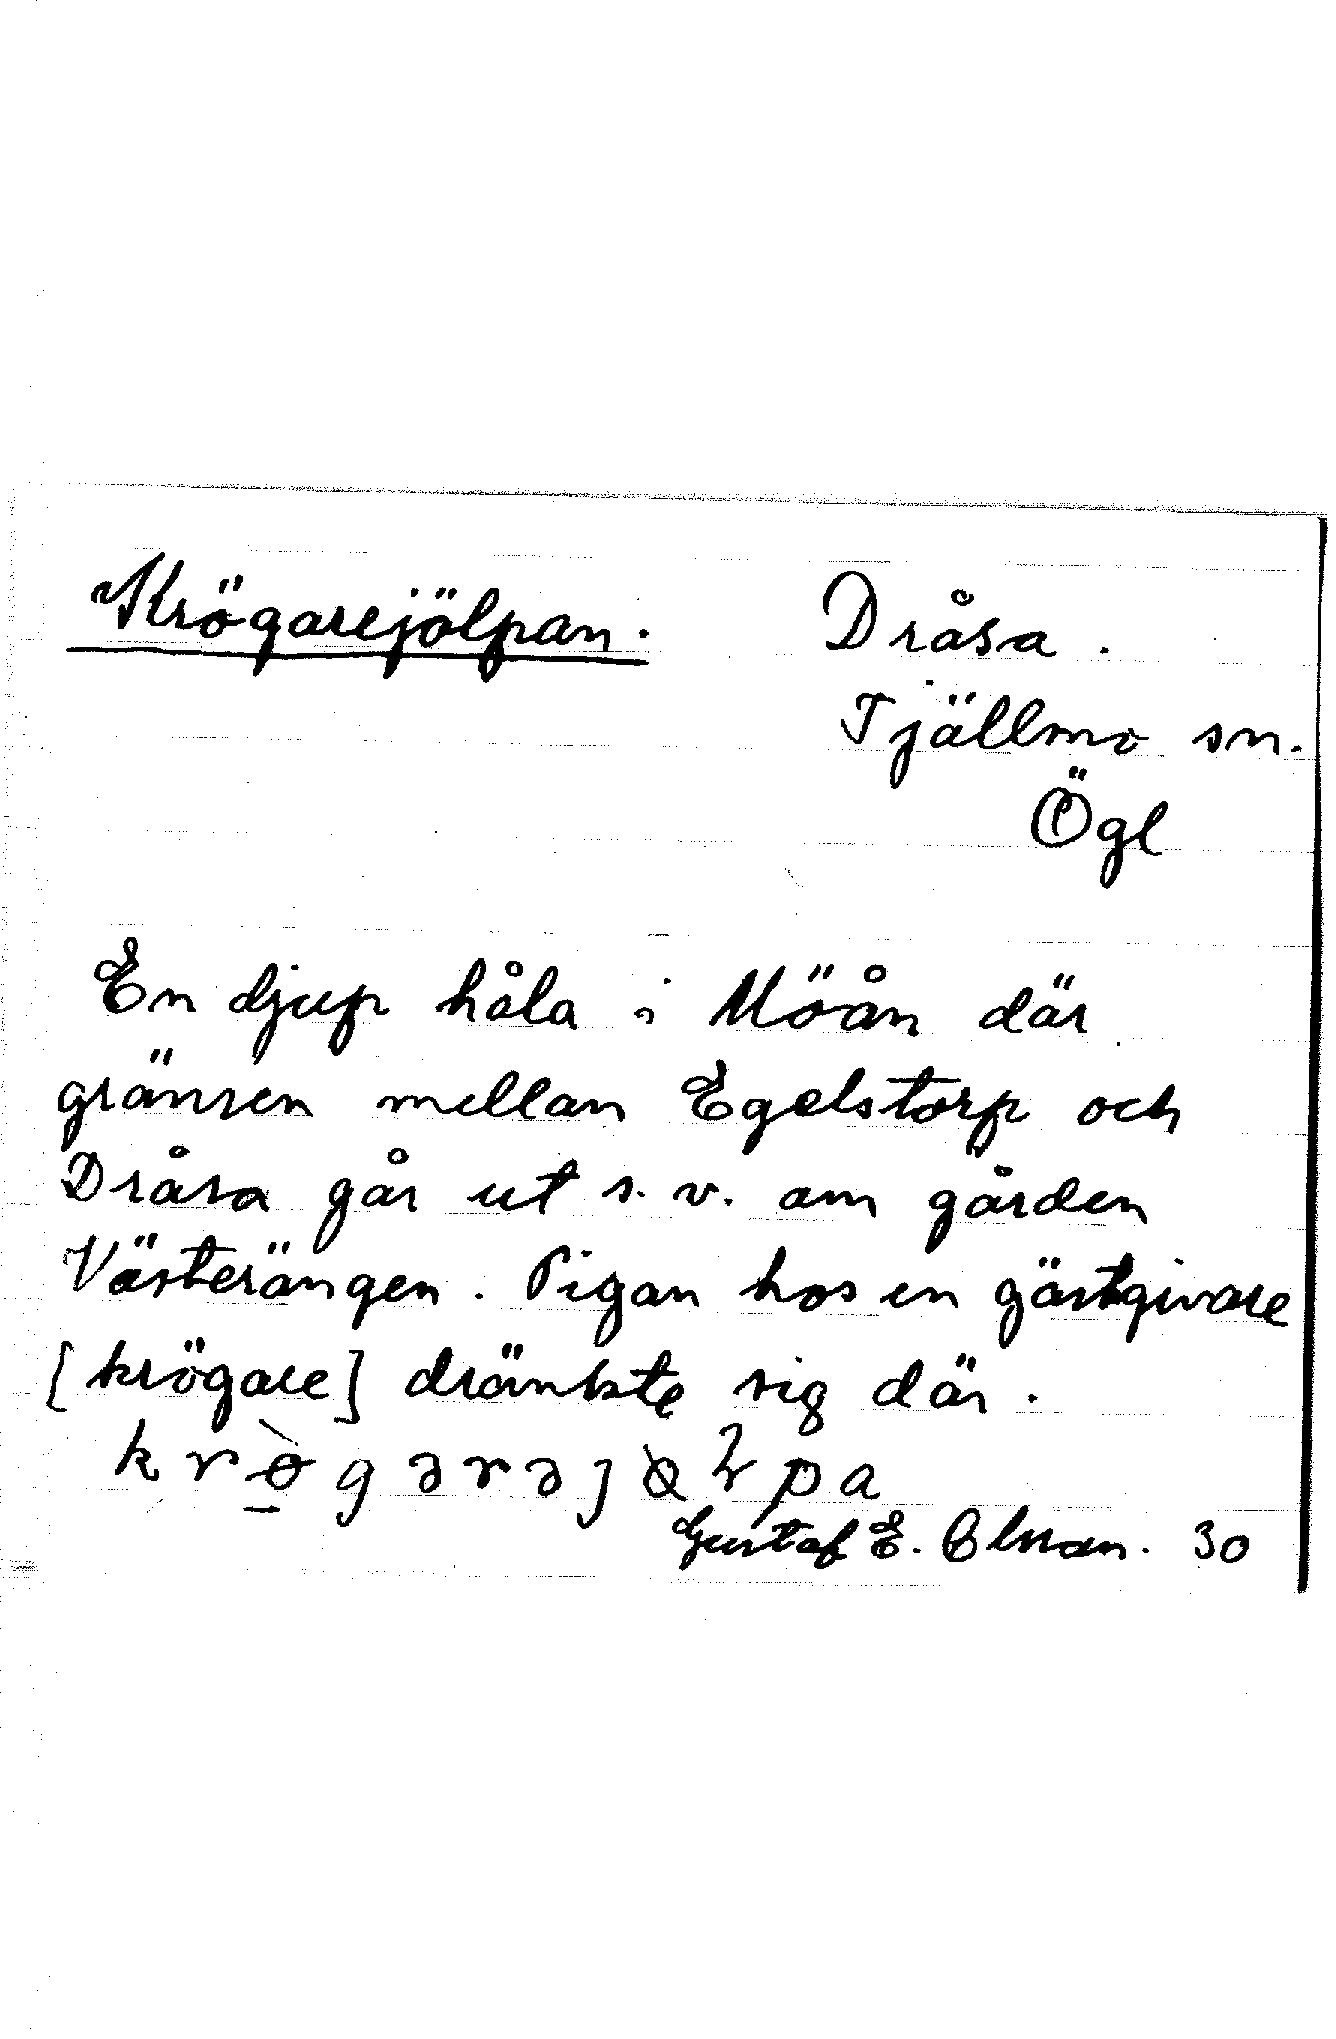 Krögarejölpan.
Dråsa.
Tjällmo sn.
Ögl
En djup håla i Möån där
gränsen mellan Egelstorp och
Dråsa går ut s. v. om gården
Västerängen. Pigan hos en gästgivare
[krögare] dränkte sig där.
Gustaf E. Olsson. 30